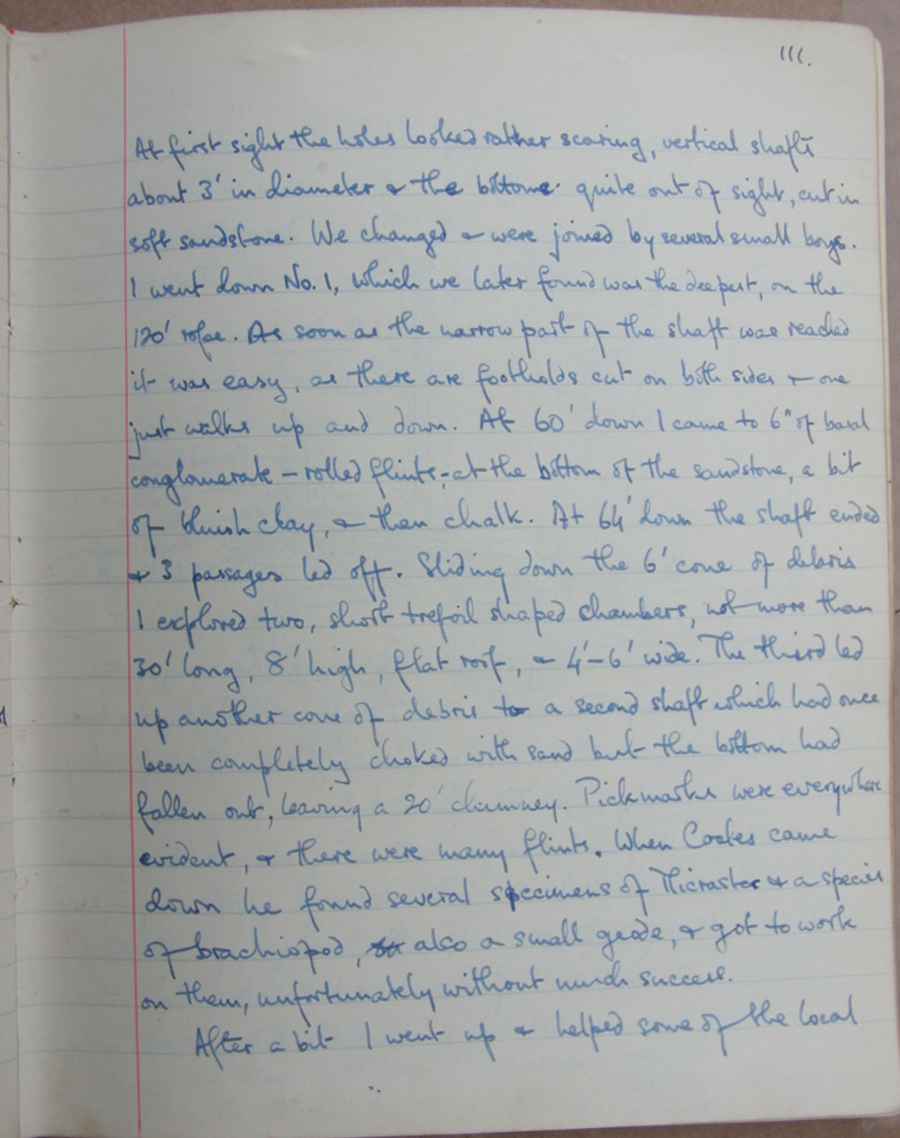 111.
At first sight the holes looked rather scaring, vertical shafts
about 3' in diameter & the bottoms quite out of sight, cut in
soft sandstone. We changed & were joined by several small boys.
I went down No. 1, which we later found was the deepest, on the
120' rope. As soon as the narrow part of the shaft was reached
it was easy, as there are footholds cut on both sides & one
just walks up and down. At 60' down I came to 6" of basal
conglomerate – rolled flints – at the bottom of the sandstone, a bit
of bluish clay, & then chalk. At 64' down the shaft ended
& 3 passages led off. Sliding down the 6' cone of debris
I explored two, short trefoil shaped chambers, not more than
30' long, 8' high, flat roof, & 4'–6' wide. The third led
up another cone of debris to a second shaft which had once
been completely choked with sand but the bottom had
fallen out, leaving a 20' chimney. Pickmarks were everywhere
evident, & there were many flints. When Cookes came
down he found several specimens of Micraster & a species
of brachiopod, also a small geode, & got to work
on them, unfortunately without much success.
After a bit I went up & helped some of the local